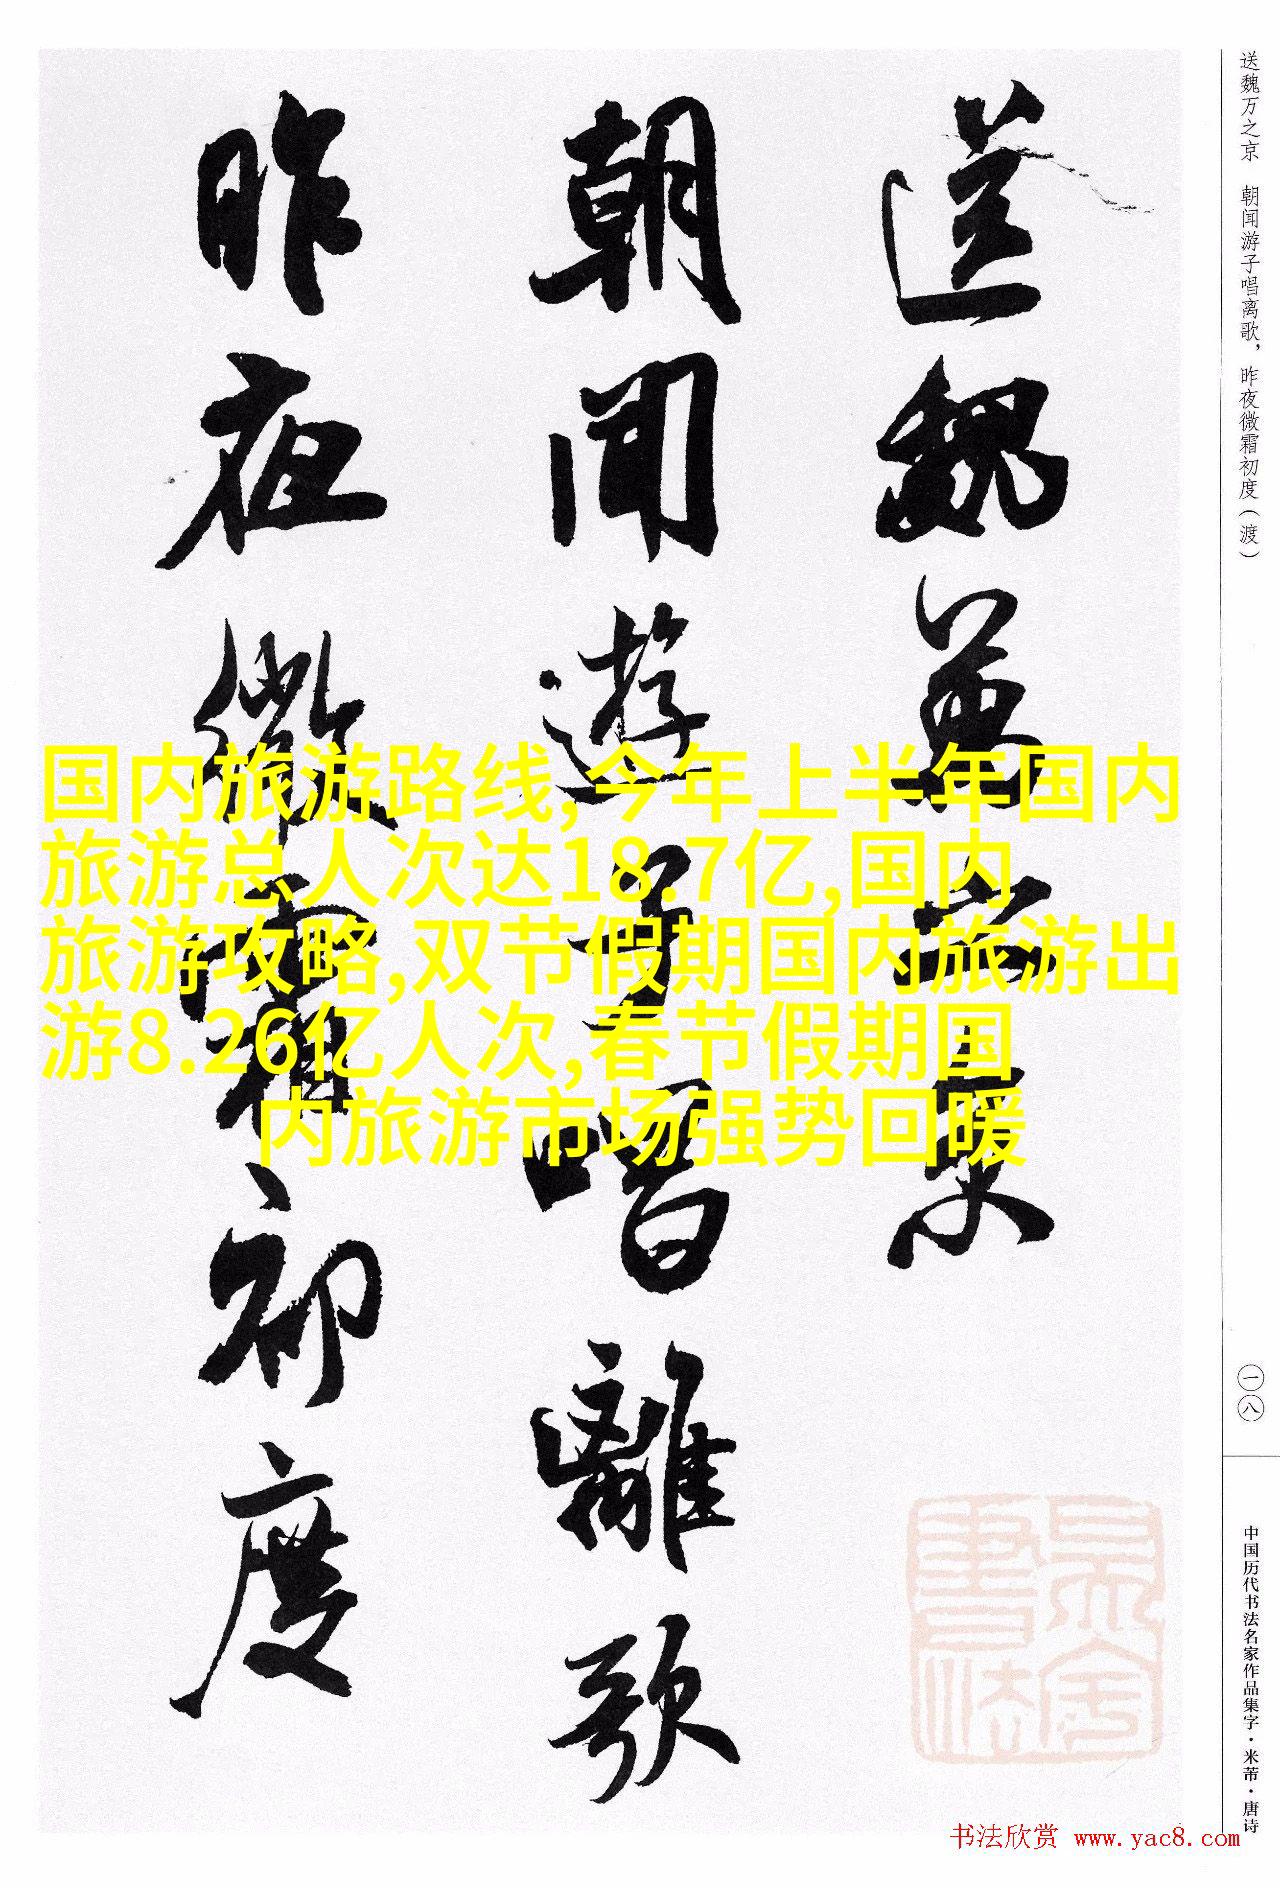 送魏萬之京
朝聞遊子唱離歌
昨夜微霜初度
国内旅游路线,今年上半年国内
旅游总人次达18.7亿,国内
旅游攻略,双节假期国内旅游出
游8.26亿人次,春节假期国
内旅游市场强势回暖
送魏万之京 朝闻游子唱离歌，昨夜微霜初度（渡）
一八
中国历代书法名家作品集字·米芾·唐诗
书法欣赏 www.yac8.com